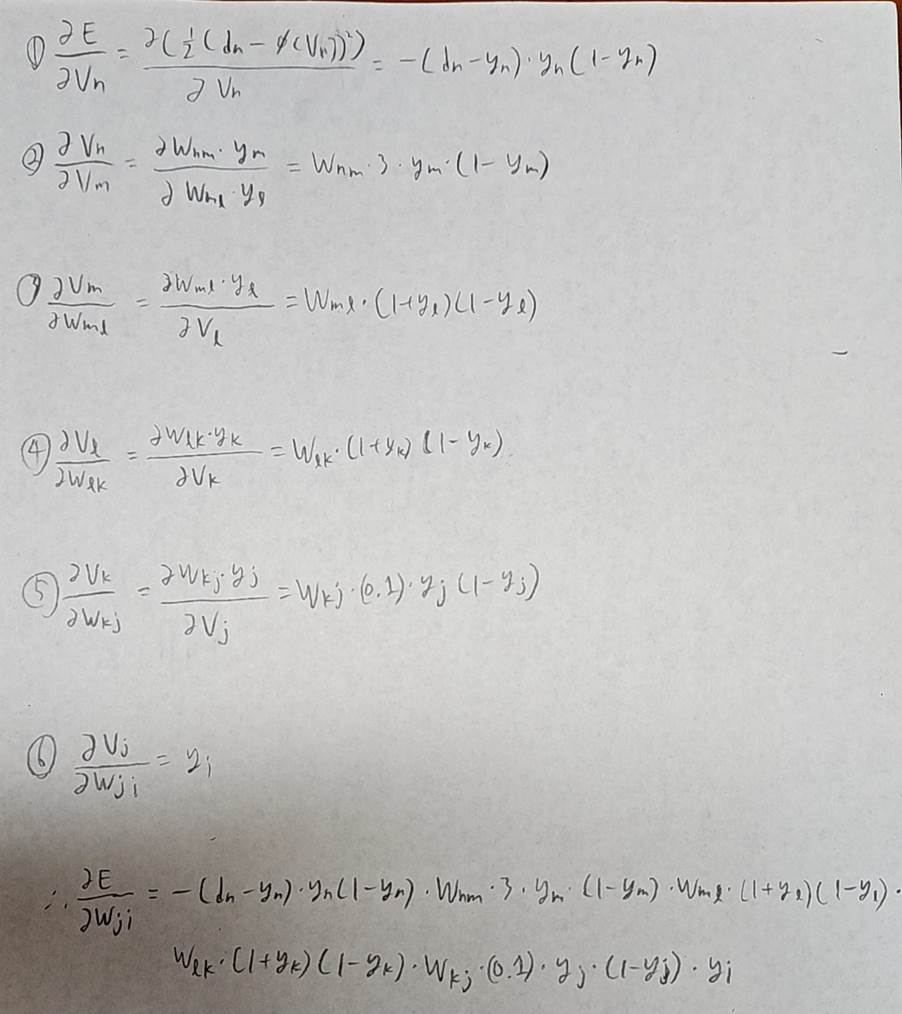 ① ∂E/∂Vn = ∂(1/2(dn - ϕ(Vn))²)/∂Vn = -(dn - yn)·yn(1-yn)
② ∂Vn/∂Vm = ∂Wnm·ym/∂Wml·yl = Wnm·3·ym·(1-ym)
③ ∂Vm/∂Wml = ∂Wml·yl/∂Vl = Wml·(1+yl)(1-yl)
④ ∂Vl/∂Wlk = ∂Wlk·yk/∂Vk = Wlk·(1+yk)(1-yk)
⑤ ∂Vk/∂Wkj = ∂Wkj·yj/∂Vj = Wkj·(0.1)·yj(1-yj)
⑥ ∂Vj/∂Wji = yi
∴ ∂E/∂Wji = -(dn-yn)·yn(1-yn)·Wnm·3·ym·(1-ym)·Wml·(1+yl)(1-yl)·
Wlk·(1+yk)(1-yk)·Wkj·(0.1)·yj·(1-yj)·yi